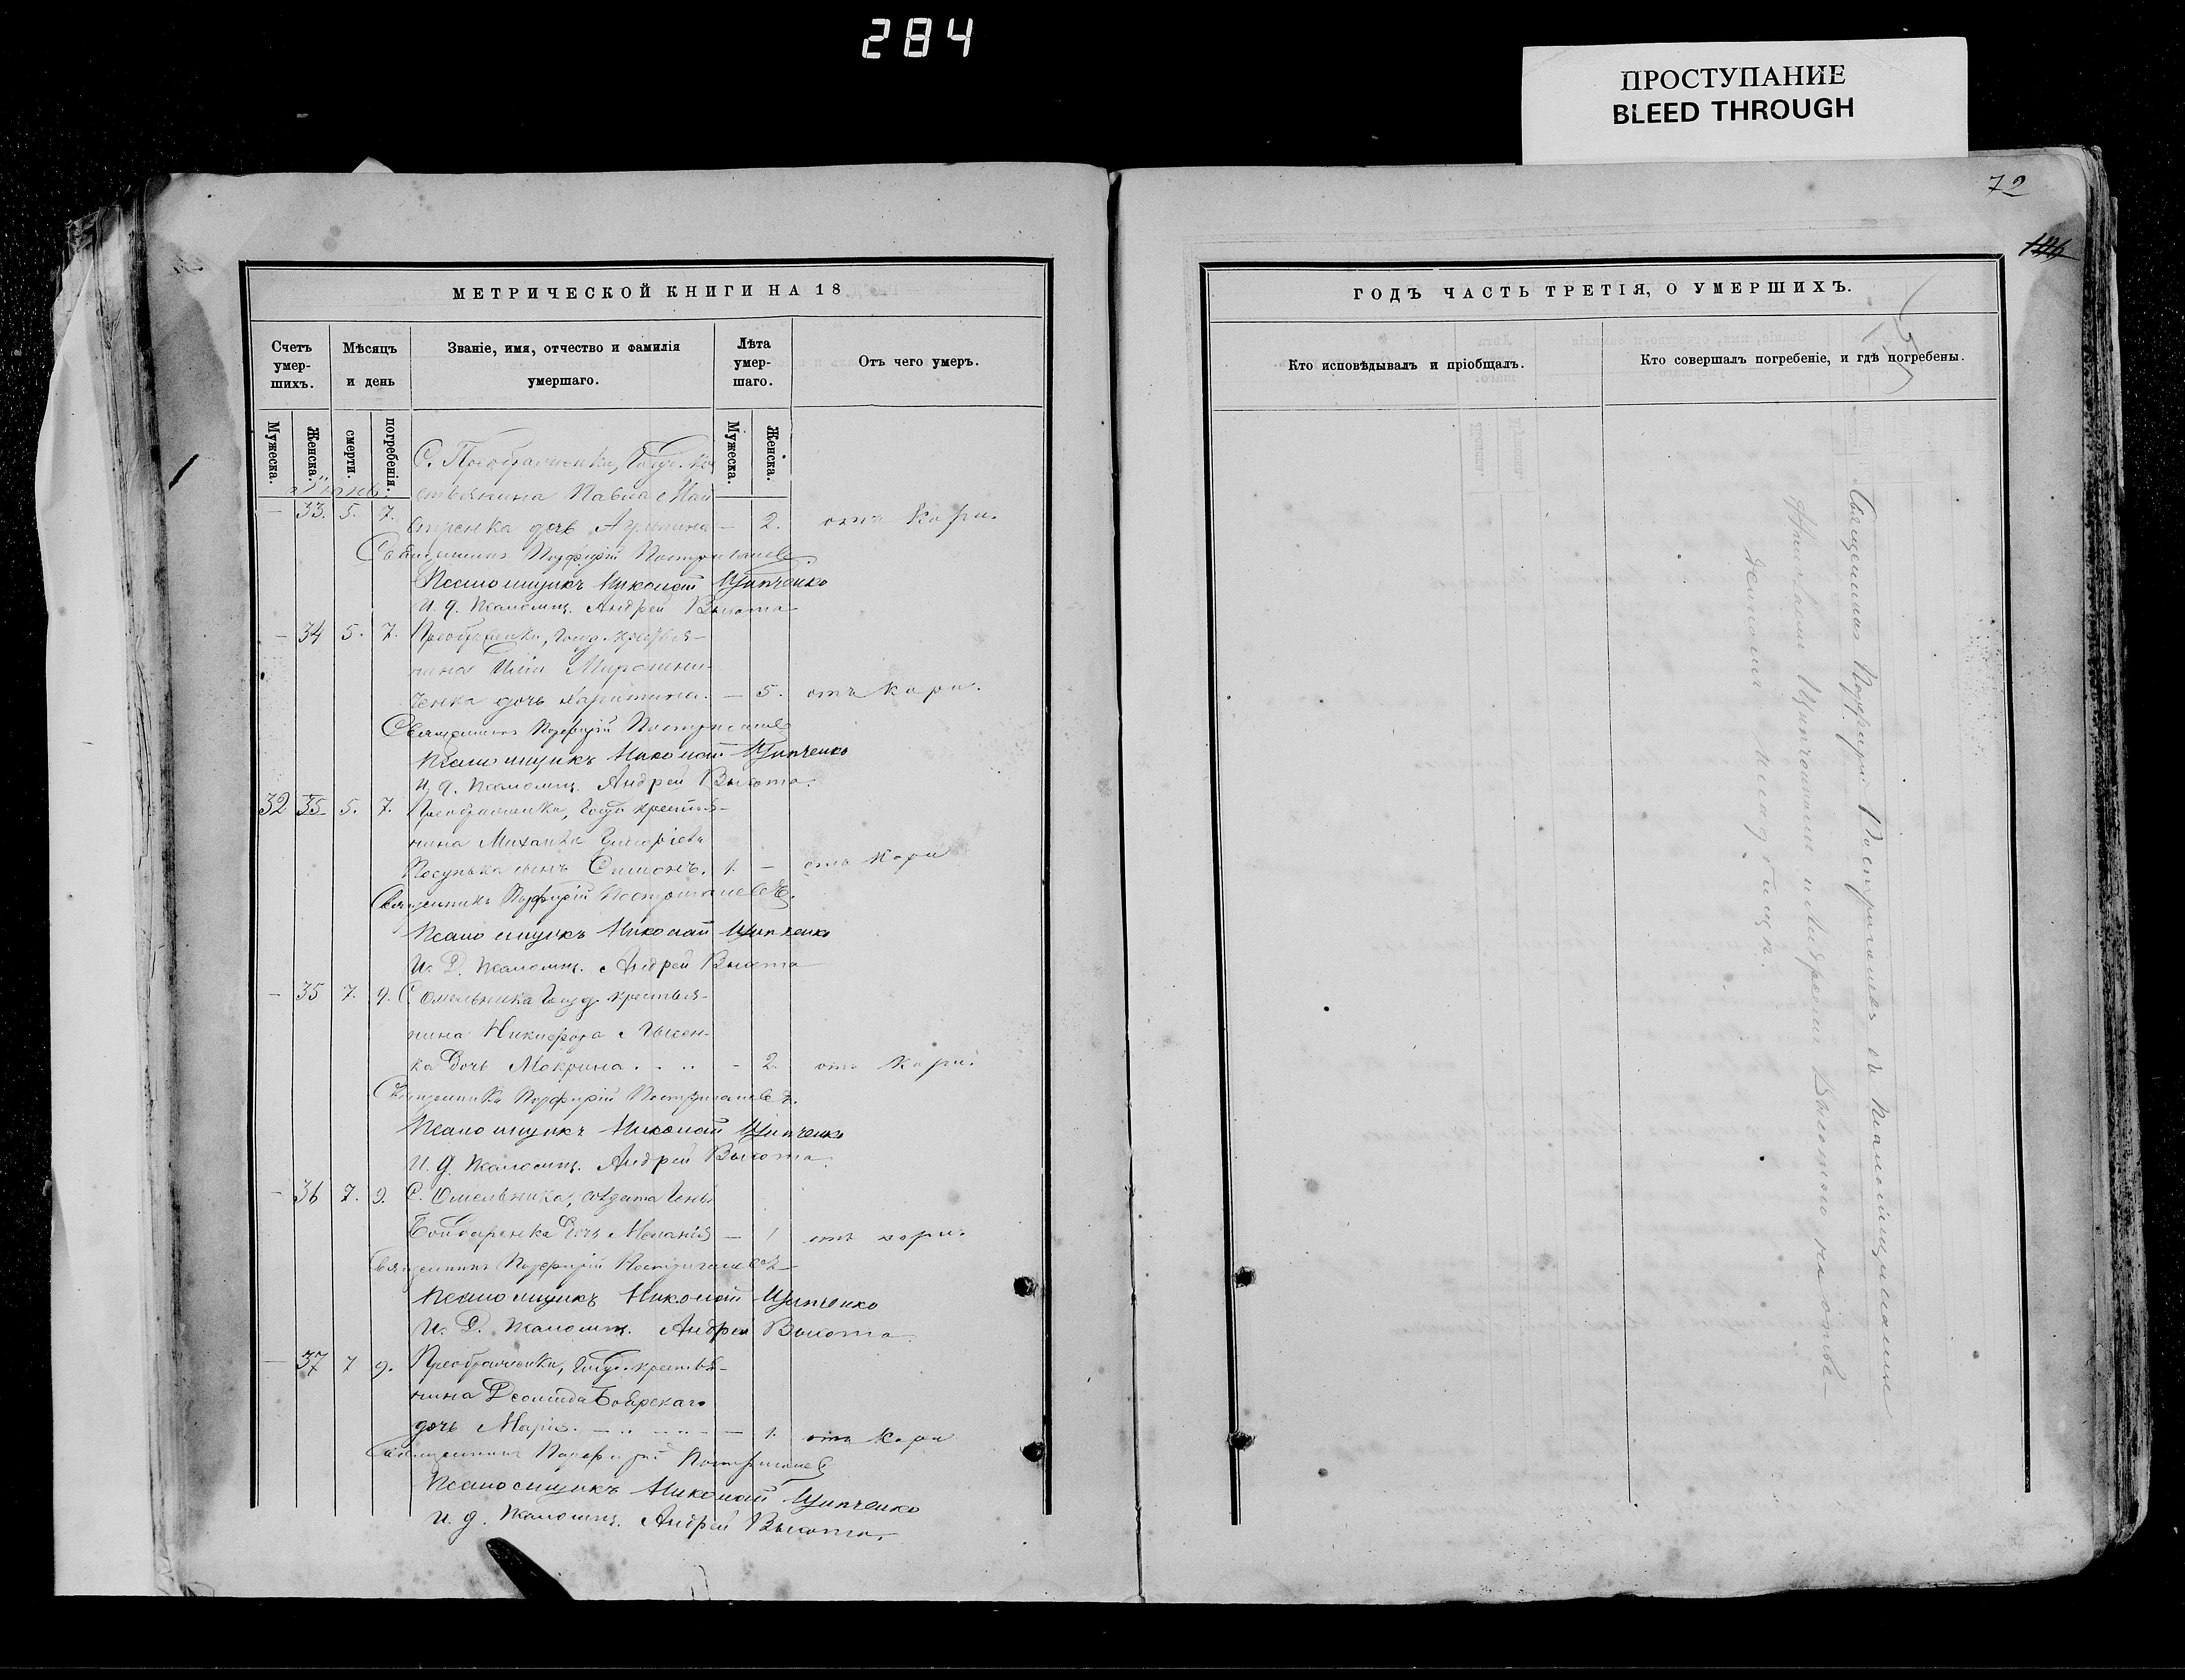 284
ПРОСТУПАНИЕ
BLEED THROUGH
72
144
МЕТРИЧЕСКОЙ КНИГИ НА 18
Счетъ умер-шихъ.
Мѣсяцъ и день
Званіе, имя, отчество и фамилія умершаго.
Лѣта умер-шаго.
Отъ чего умеръ.
Мужеска.
Женска.
смерти.
погребенія.
Мужеска.
Женска.
С. Преображенки, Госуд. кре
стьянина Павла
33. 5. 7. дочь Агрипина — 2. отъ кори.
Священникъ Порфирій
Псаломщикъ Николай Щипченко
И. д. Псаломщ. Андрей Высота
— 34 5. 7. Преображенки, Госуд. крестья-
нина Иліи Мирошни-
ченка дочь Харитина. — 5. отъ кори.
Священникъ Порфирій
Псаломщикъ Николай Щипченко
И. д. Псаломщ. Андрей Высота.
32 35 5. 7. Преображенки, Госуд. крестья-
нина Михаила Григоріева
сынъ Симонъ. 1. — отъ кори
Священникъ Порфирій
Псаломщикъ Николай Щипченко
И. Д. Псаломщ. Андрей Высота
— 35 7. 9. С. Омельника Госуд. крестья-
нина Никифора Лысен-
ка дочь Мокрина. — 2. отъ кори.
Священникъ Порфирій
Псаломщикъ Николай Щипченко
И. д. Псаломщ. Андрей Высота.
— 36 7. 9. С. Омельника, солдата
Бондаренка дочь Меланія — 1 отъ кори.
Священникъ Порфирій
Псаломщикъ Николай Щипченко
И. Д. Псаломщ. Андрей Высота.
— 37 7 9. Преображенки, Госуд. крестья-
нина Діомида Боярскаго
дочь Марія. — 1. отъ кори
Священникъ Порфирій
Псаломщикъ Николай Щипченко
И. д. Псаломщ. Андрей Высота.
ГОДЪ ЧАСТЬ ТРЕТІЯ, О УМЕРШИХЪ.
Кто исповѣдывалъ и пріобщалъ.
Кто совершалъ погребеніе, и гдѣ погребены.
Священникъ Порфирій съ псаломщиками
Николаемъ Щипченкомъ и Андреемъ Высотою на
кладбищѣ.